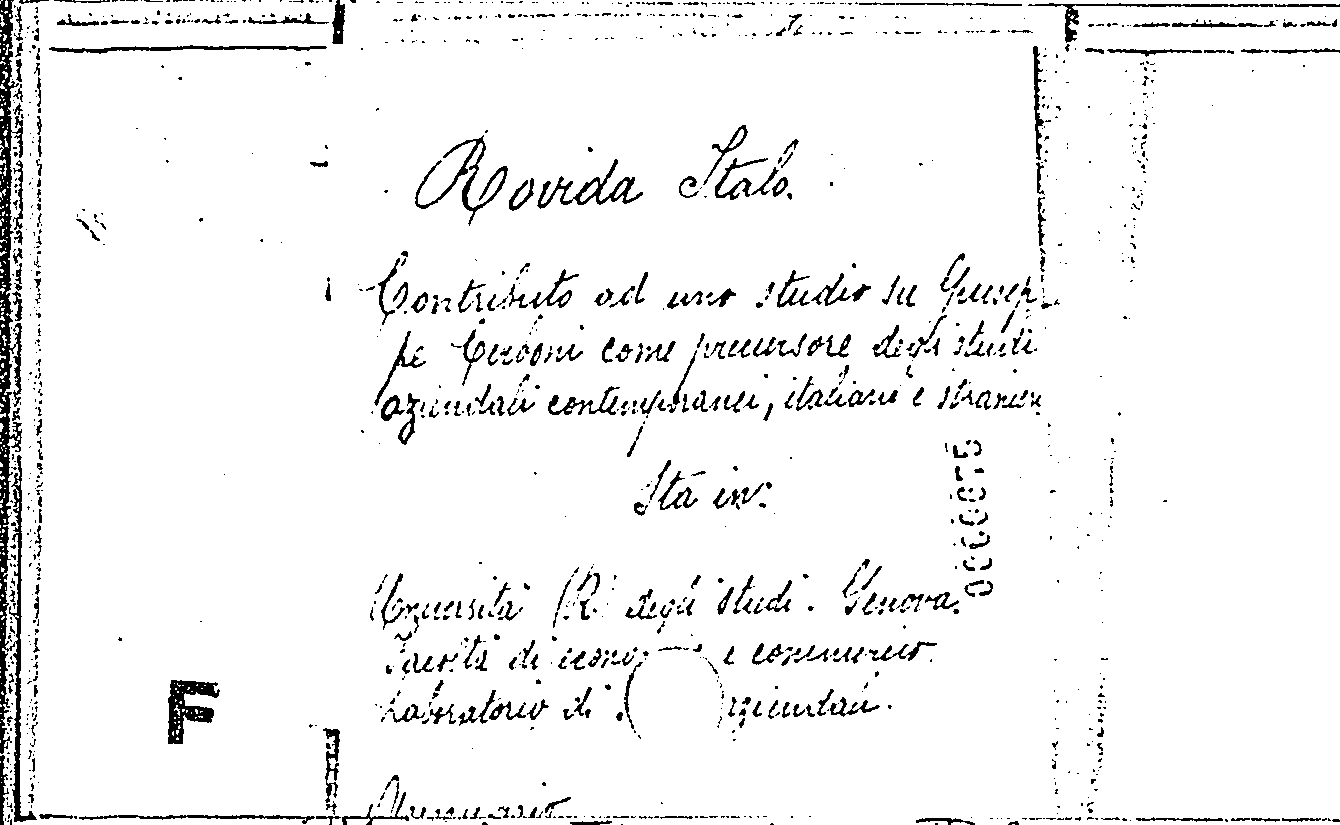 Rovida Italo.
Contributo ad uno studio su Giusep-
pe Cerboni come precursore degli studi
aziendali contemporanei, italiani e stranieri
Sta in:
Università (R) degli studi. Genova.
Facoltà di econo e commercio.
Laboratorio di aziendali.
Annuario
0000075
F